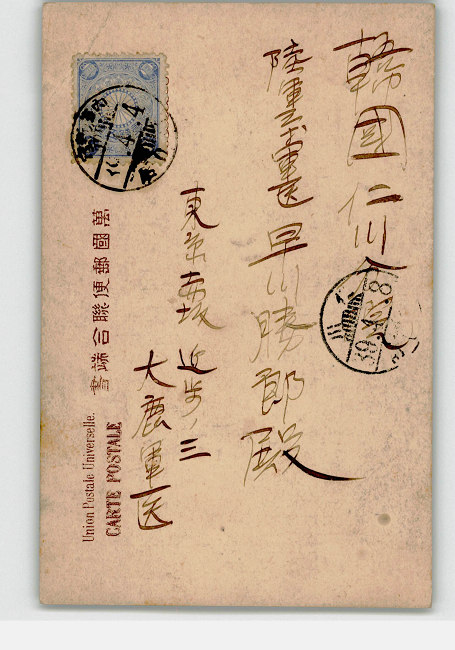 韓國仁川
陸軍三等軍医
早川勝郎殿
東京赤坂
近歩ノ三
大鹿軍医
萬國郵便聯合端書
Union Postale Universelle.
CARTE POSTALE